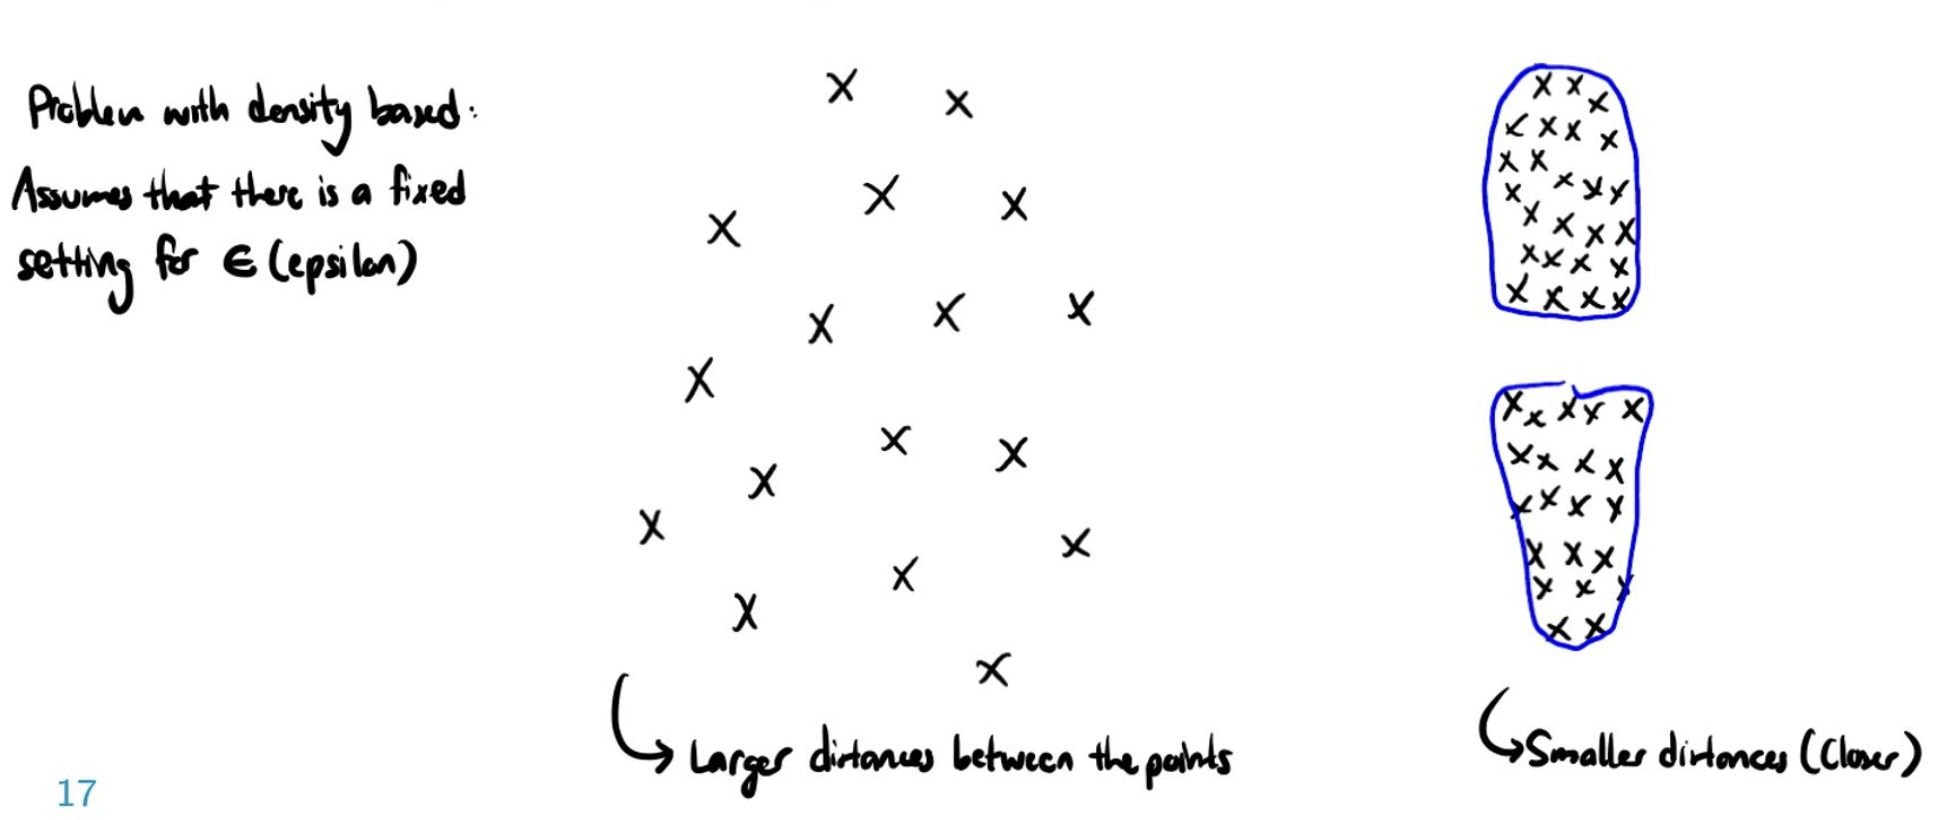 Problem with density based:
Assumes that there is a fixed
setting for ∈ (epsilon)
Larger distances between the points
Smaller distances (Closer)
17